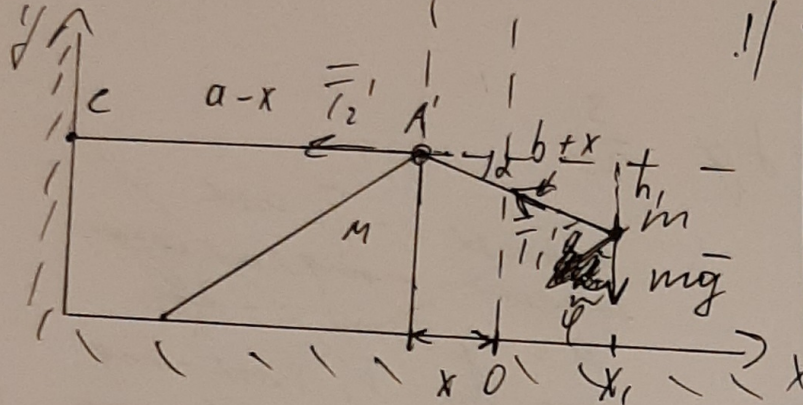 y
!!
C
a-x
T₂'
A'
α
b+x
h₁
m
M
T₁'
mg
φ
x
O
x₁
x